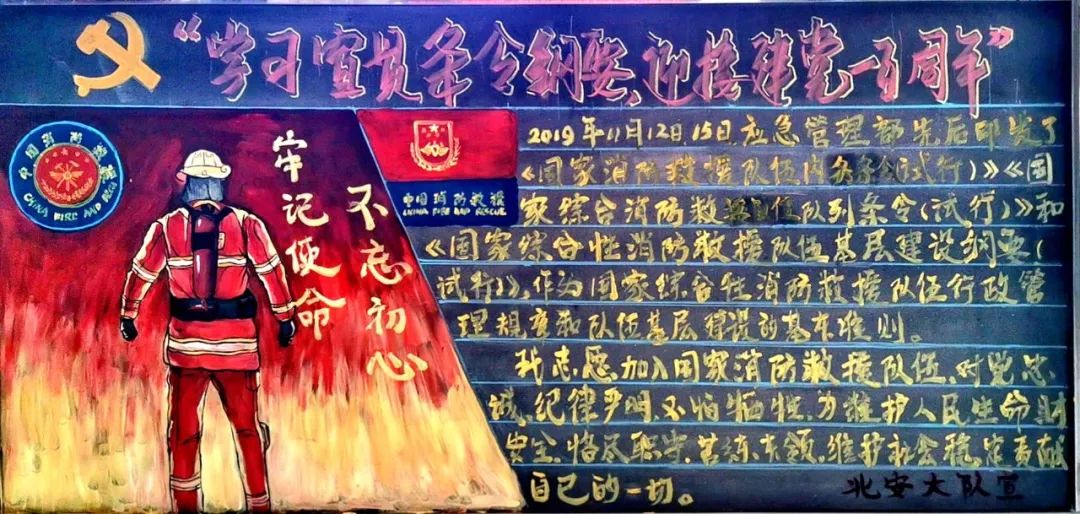 “学习宣贯条令纲要、迎接建党一百周年”
中国消防救援
CHINA FIRE AND RESCUE
牢记使命
不忘初心
中国消防救援
CHINA FIRE AND RESCUE
2019年11月12日、15日,应急管理部先后印发了
《国家消防救援队伍内务条令(试行)》《国
家综合消防救援队伍队列条令(试行)》和
《国家综合性消防救援队伍基层建设纲要(
试行)》,作为国家综合性消防救援队伍行政管
理规章和队伍基层建设的基本准则。
我志愿加入国家消防救援队伍,对党忠
诚,纪律严明,不怕牺牲,为维护人民生命财
安全,恪尽职守,苦练本领,维护社会稳定贡献
自己的一切。
北安大队宣